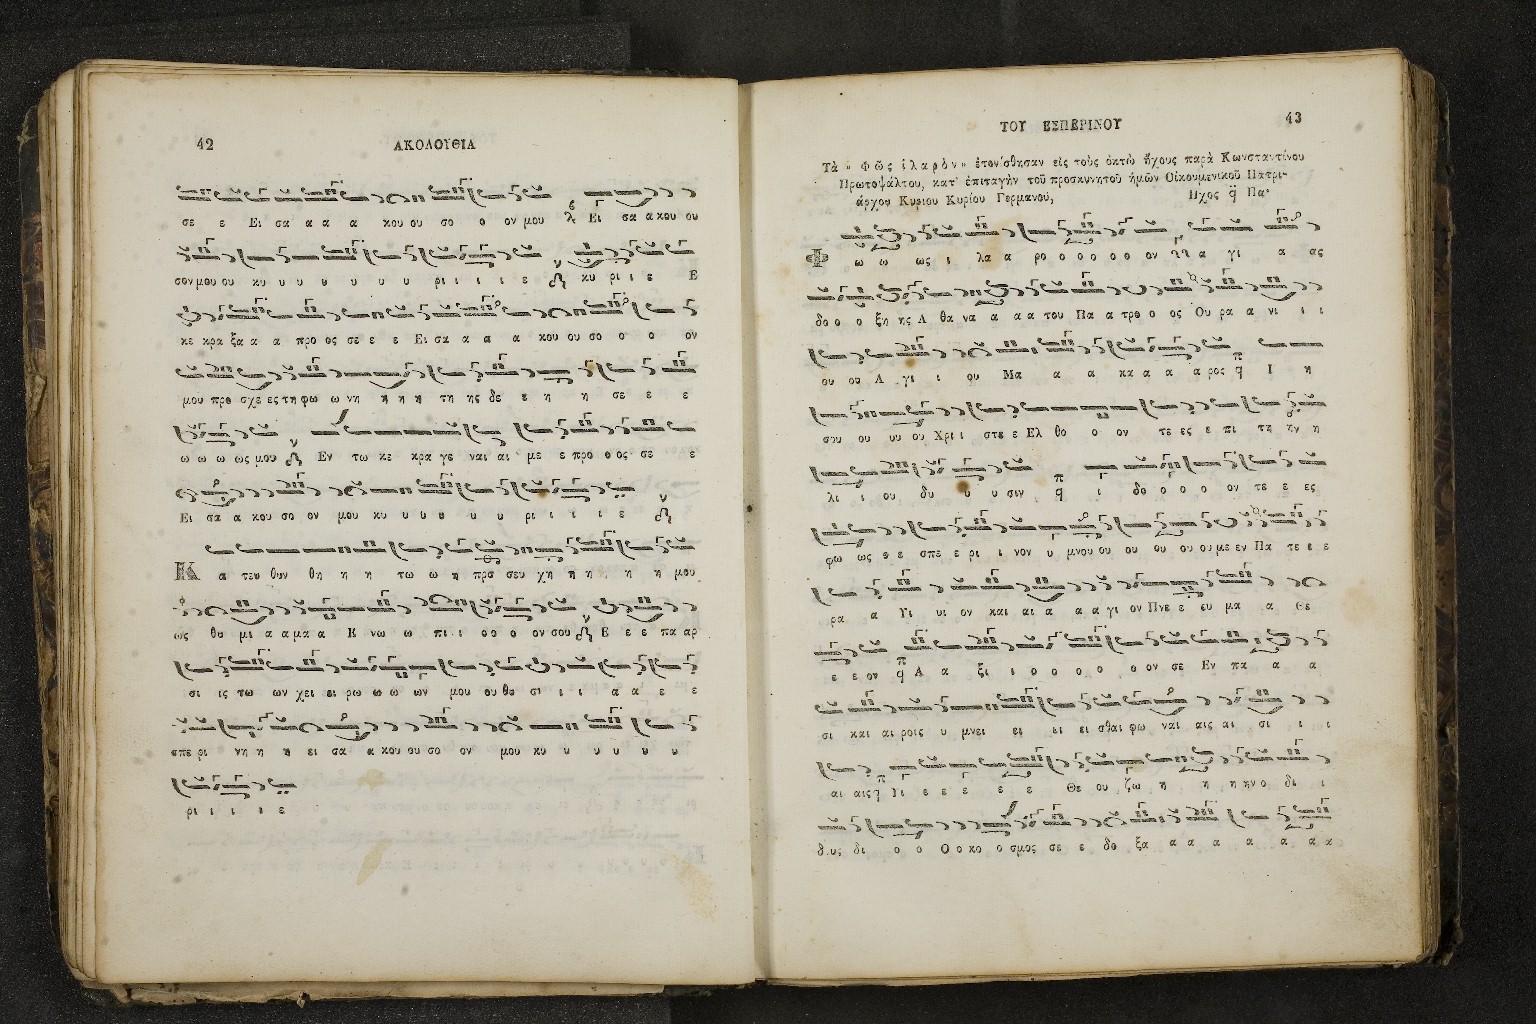 42
ΑΚΟΛΟΥΘΙΑ
σε ε Ει σα α α α κου ου σο ο ον μου Ει σα α κου ου
σον μου ου κυ υ υ υ υ υ υ ρι ι ι ι ε κυ ρι ι ε Ε
κε κρα ξα α α προ ος σε ε ε Ει σα α α α κου ου σο ο ο ον
μου προ σχε ες τη φω ω νη η η η τη ης δε ε η η σε ε ε
ω ω ω ως μου Εν τω κε κρα γε ναι αι με ε προ ο ος σε ε
Ει σα α κου σο ον μου κυ υ υ υ υ υ ρι ι ι ι ε
Κ α τευ θυν θη η η τω ω η προ σευ χη η η η η η μου
ως θυ μι α α μα α Ε νω ω πι ι ι ο ο ο ον σου Ε ε ε πα αρ
σι ις τω ων χει ει ρω ω ω ων μου ου θυ σι ι ι α α ε ε
σπε ρι νη η η ει σα α κου ου σο ον μου κυ υ υ υ υ υ
ρι ι ι ι ε
ΤΟΥ ΕΣΠΕΡΙΝΟΥ
43
Τὰ « Φῶς ἱλαρὸν » ἐτονίσθησαν εἰς τοὺς ὀκτὼ ἤχους παρὰ Κωνσταντίνου
Πρωτοψάλτου, κατ' ἐπιταγὴν τοῦ προσκυνητοῦ ἡμῶν Οἰκουμενικοῦ Πατρι-
άρχου Κυρίου Κυρίου Γερμανοῦ, Ηχος q Πα·
Φ ω ω ως ι λα α ρο ο ο ο ο ο ον α γι α ας
δο ο ο ξη ης Α θα να α α α του Πα α τρο ο ος Ου ρα α νι ι ι
ου ου Α γι ι ου Μα α α κα α α α ρος Ι η
σου ου ου ου Χρι ι στε ε Ελ θο ο ον τε ες ε πι τη ην η
λι ι ου δυ υ υ σιν ι δο ο ο ο ον τε ε ες
φω ως ε σπε ε ρι ι νον υ μνου ου ου ου ου ου με εν Πα τε ε ε
ρα α Υι υι ον και αι α α α γι ον Πνε ε ευ μα α Θε
ε ε ον Α α ξι ι ο ο ο ο ο ον σε Εν πα α α
σι και αι ροις υ μνει ει ει ει σθαι φω ναι αις αι σι ι ι
αι αις Υι ε ε ε ε ε Θε ου ζω η η η ην ο δι ι
δους δι ο ο Ο ο κο ο σμος σε ε δο ξα α α α α α α α